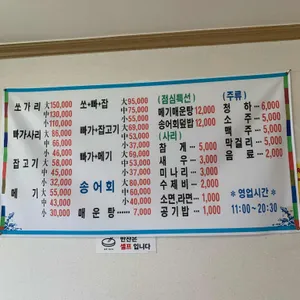 쏘가리 大 150,000
中 130,000
小 110,000
빠가사리 大 86,000
中 66,000
小 46,000
잡고기 大 58,000
中 45,000
小 35,000
메기 大 50,000
中 43,000
小 30,000
쏘+빠+잡 大 95,000
中 75,000
小 55,000
빠가+잡고기 大
빠가+메기
송어회
매운탕 ------ 7,000
(점심특선)
메기매운탕 12,000
송어회덮밥 12,000
(사리)
참게 ... 5,000
새우 ... 3,000
미나리 ... 3,000
수제비 ... 2,000
소면,라면 ... 1,000
공기밥 ... 1,000
(주류)
청하 ... 6,000
소주 ... 5,000
맥주 ... 5,000
막걸리 ... 5,000
음료 ... 2,000
*영업시간*
11:00~20:30
반찬은
셀프입니다